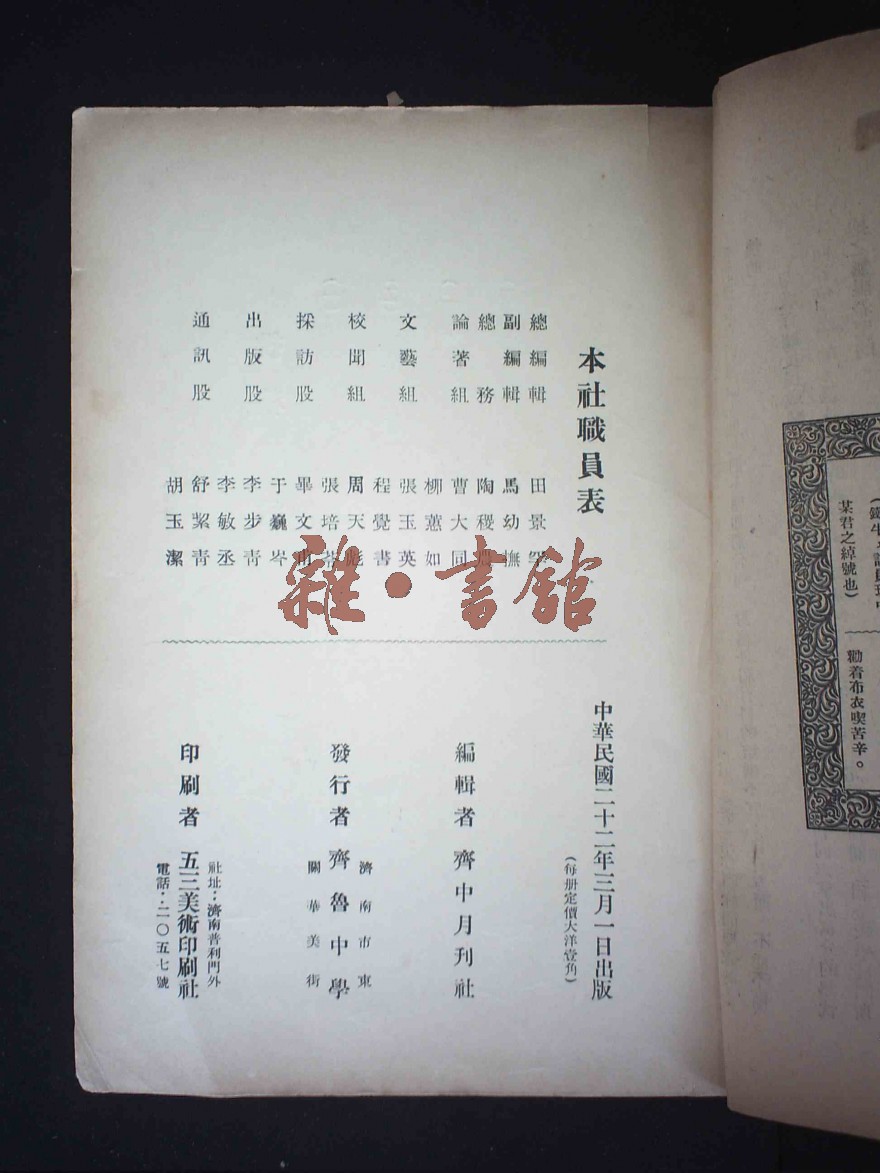 本社職員表
總編輯 田景
副編輯 馬幼撫
總務 陶稷
論著組 曹大同
柳蕙如
文藝組 張玉英
程覺書
校聞組 周天彪
張培
採訪股 畢文
于巍岑
出版股 李步青
李敏丞
通訊股 舒絜青
胡玉潔
雜·書館
中華民國二十二年三月一日出版
(每册定價大洋壹角)
編輯者 齊中月刊社
發行者 齊魯中學
濟南市東
關華美街
印刷者 五三美術印刷社
社址：濟南普利門外
電話：二〇五七號
某君之綽號也)
勸着布衣喫苦辛。